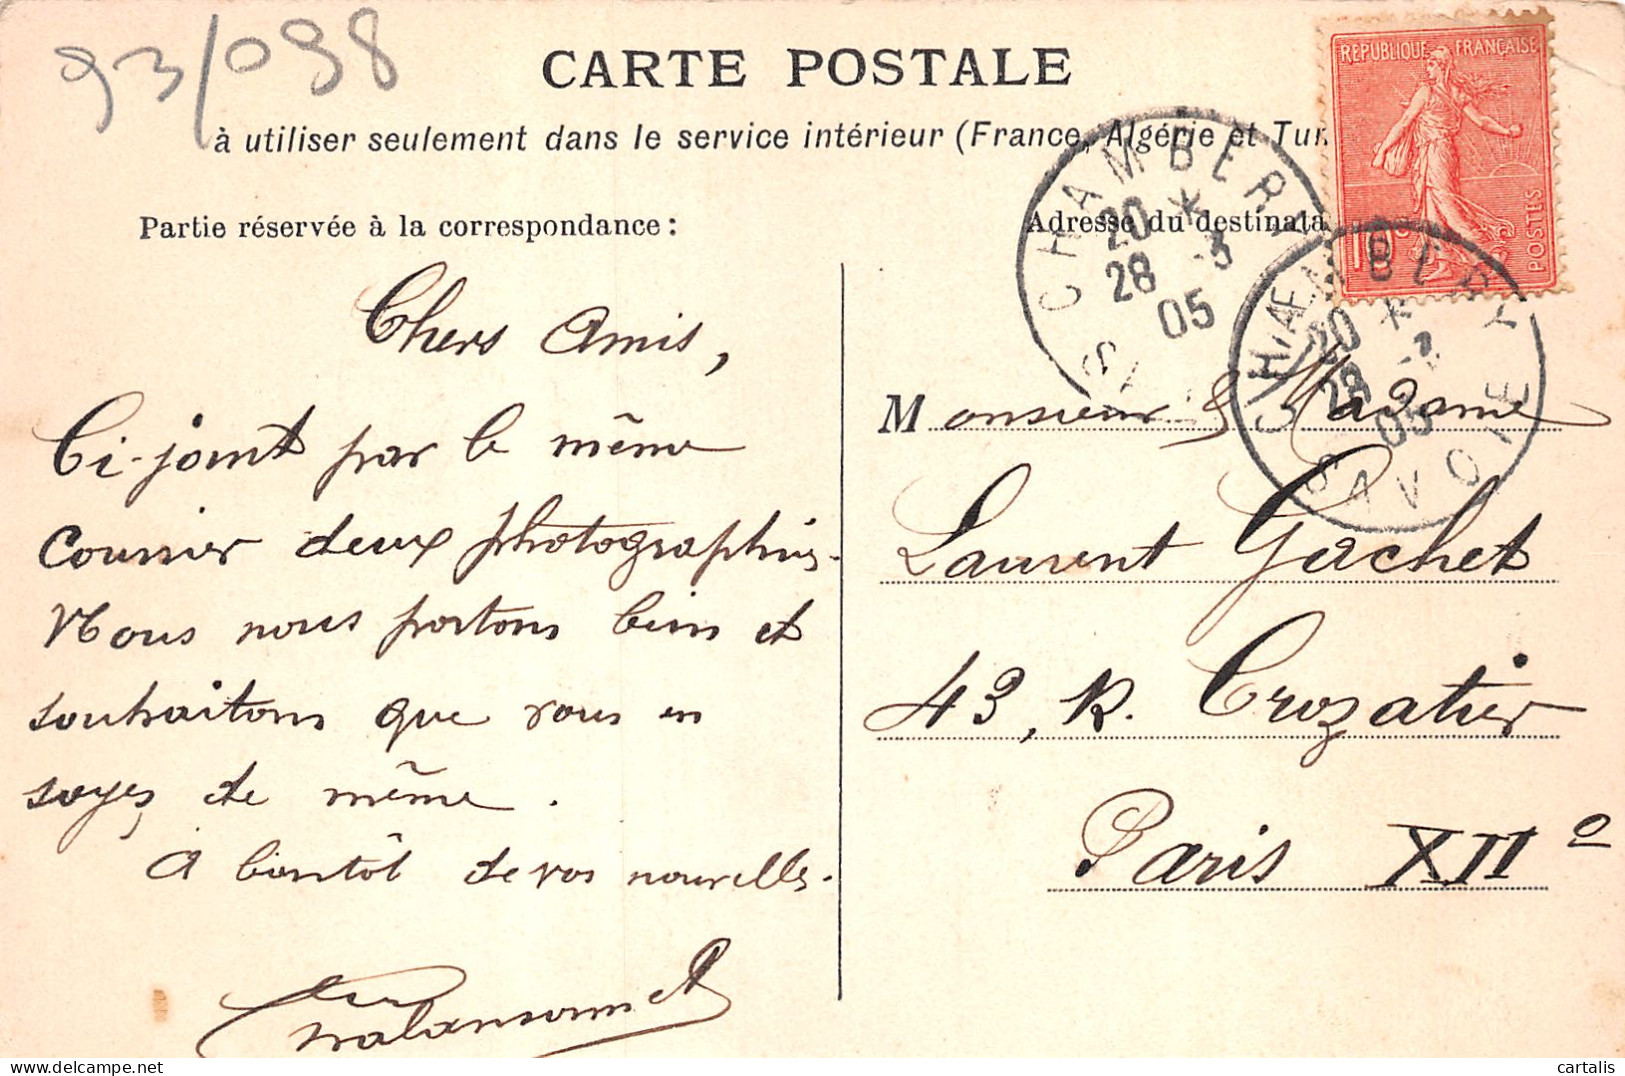 93/098
CARTE POSTALE
à utiliser seulement dans le service intérieur (France, Algérie et Tun
Partie réservée à la correspondance :
Adresse du destinata
REPUBLIQUE FRANÇAISE
POSTES
10c
CHAMBERY
20 *
28 -3
05
SAVOIE
CHAMBERY
20 *
28 -3
05
SAVOIE
Chers Amis,
Ci-joint par le même
courrier deux photographies.
Nous nous portons bien et
souhaitons que vous en
soyez de même.
A bientôt de vos nouvelles.
Monsieur & Madame
Laurent Gachet
43, R. Crozatier
Paris XIIe
cartalis
delcampe.net